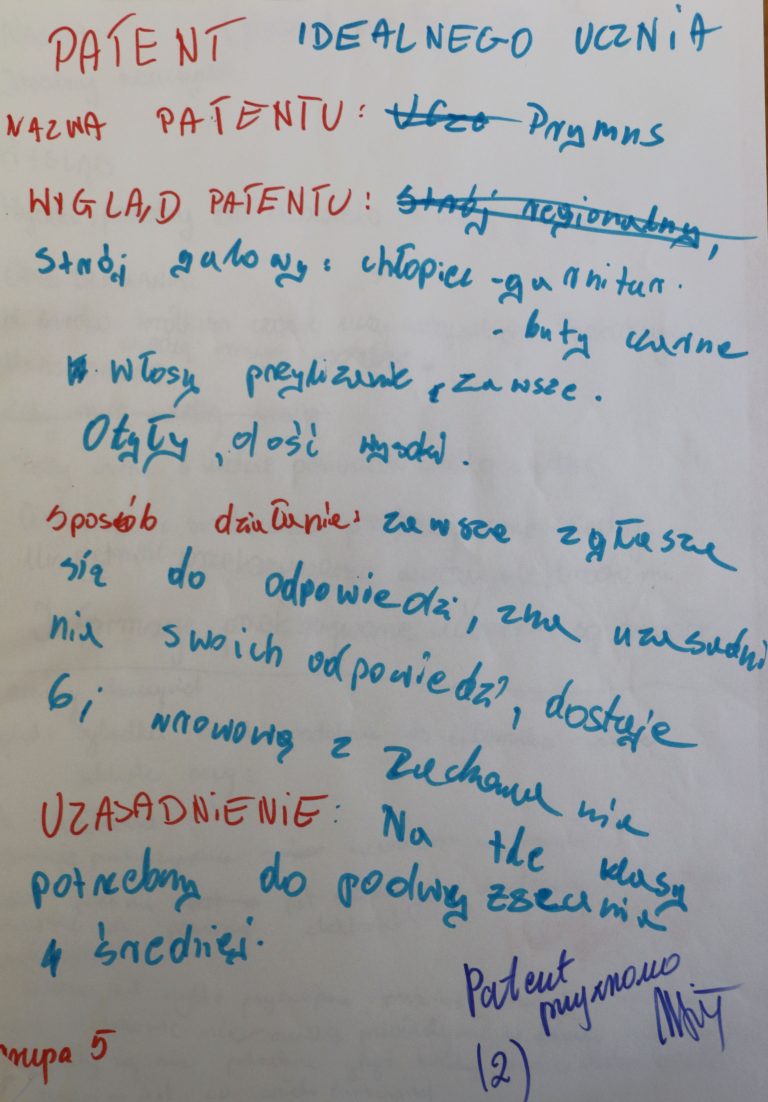 PATENT IDEALNEGO UCZNIA
NAZWA PATENTU: Uczo Prymus
WYGLĄD PATENTU: Strój regionalny,
Strój galowy: chłopiec - garnitur.
- buty czarne
włosy przylizane, zawsze.
Otyły, dość wysoki.
sposób działania: zawsze zgłasza
się do odpowiedzi, zna uzasadni
nia swoich odpowiedzi, dostaje
6, wzorową z zachowania
UZASADNIENIE: Na tle klasy
potrzebny do podwyższania
średniej.
Patent
przyznano
(2)
grupa 5